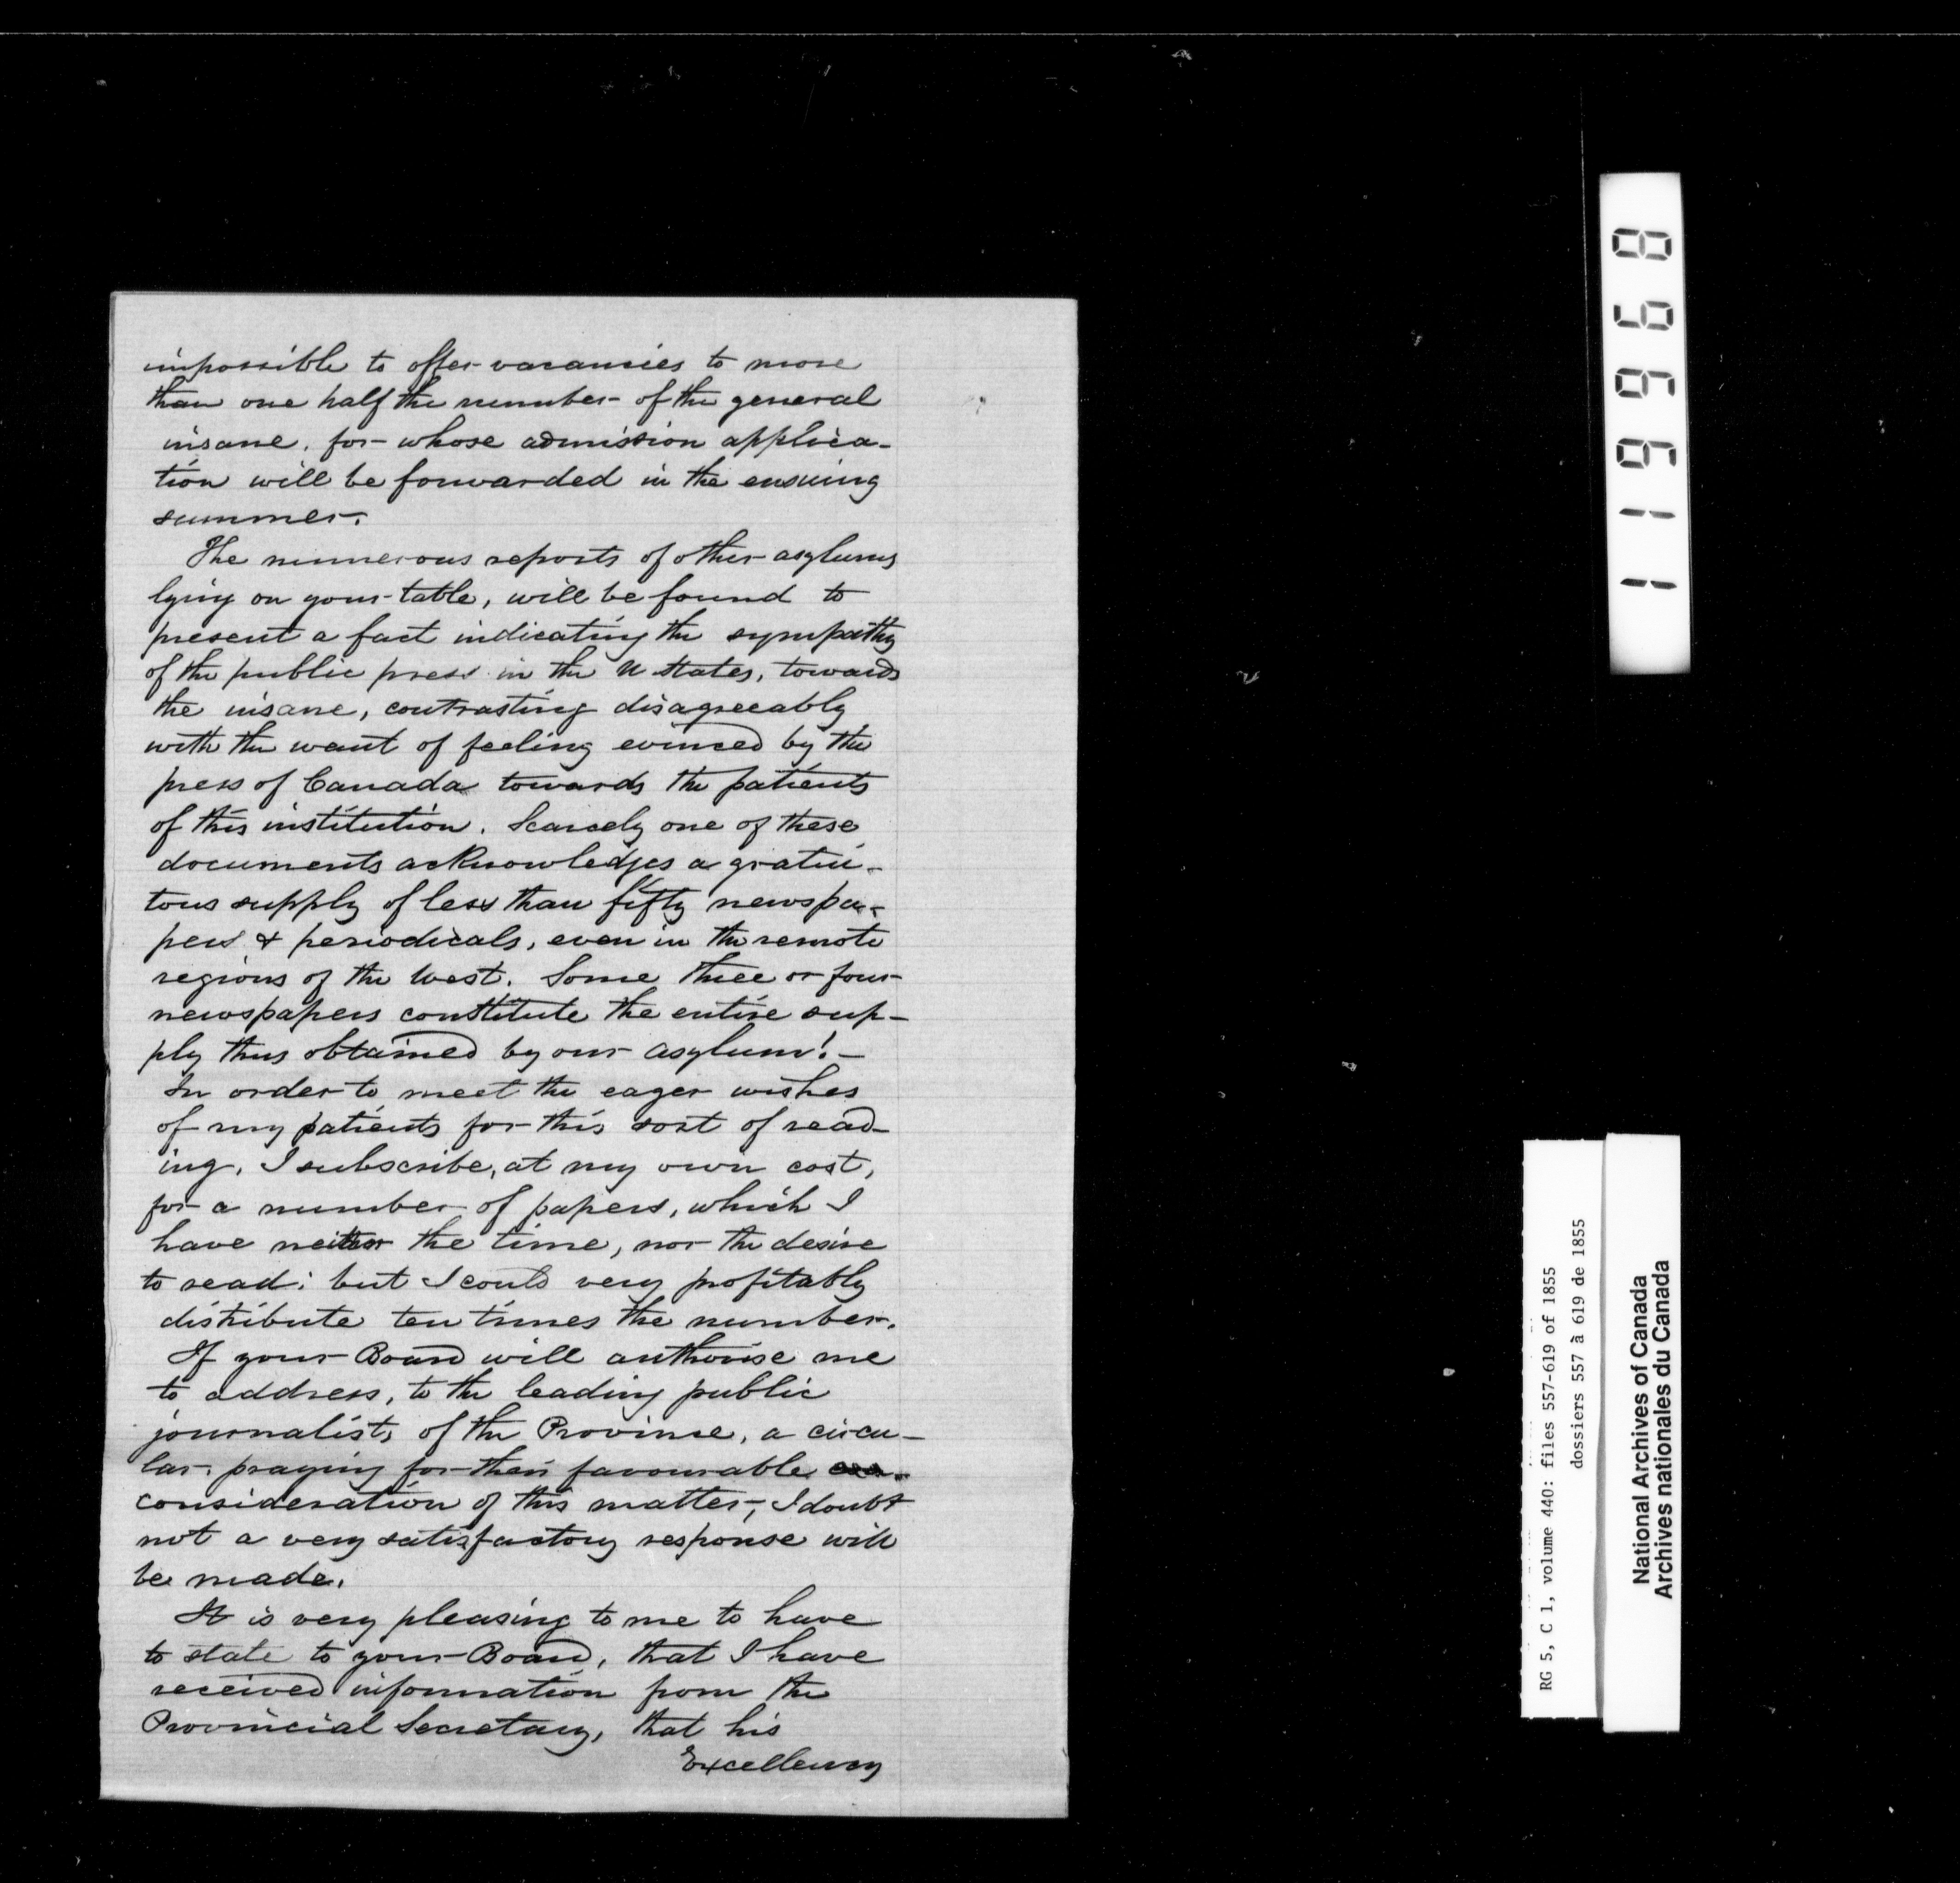 impossible to offer vacancies to more
than one half the number of the general
insane, for whose admission applica-
tion will be forwarded in the ensuing
summer.
The numerous reports of other asylums
lying on your table, will be found to
present a fact indicating the sympathy
of the public press in the U States, towards
the insane, contrasting disagreeably
with the want of feeling evinced by the
press of Canada towards the patients
of this institution. Scarcely one of these
documents acknowledges a gratui-
tous supply of less than fifty newspa-
pers & periodicals, even in the remote
regions of the West. Some three or four
newspapers constitute the entire sup-
ply thus obtained by our asylum! -
In order to meet the eager wishes
of my patients for this sort of read-
ing, I subscribe, at my own cost,
for a number of papers, which I
have neither the time, nor the desire
to read; but I could very profitably
distribute ten times the number.
If your Board will authorise me
to address, to the leading public
journalists of the Province, a circu-
lar, praying for their favourable
consideration of this matter, I doubt
not a very satisfactory response will
be made.
It is very pleasing to me to have
to state to your Board, that I have
received information from the
Provincial Secretary, that his
Excellency
119968
RG 5, C 1, volume 440: files 557-619 of 1855
dossiers 557 à 619 de 1855
National Archives of Canada
Archives nationales du Canada